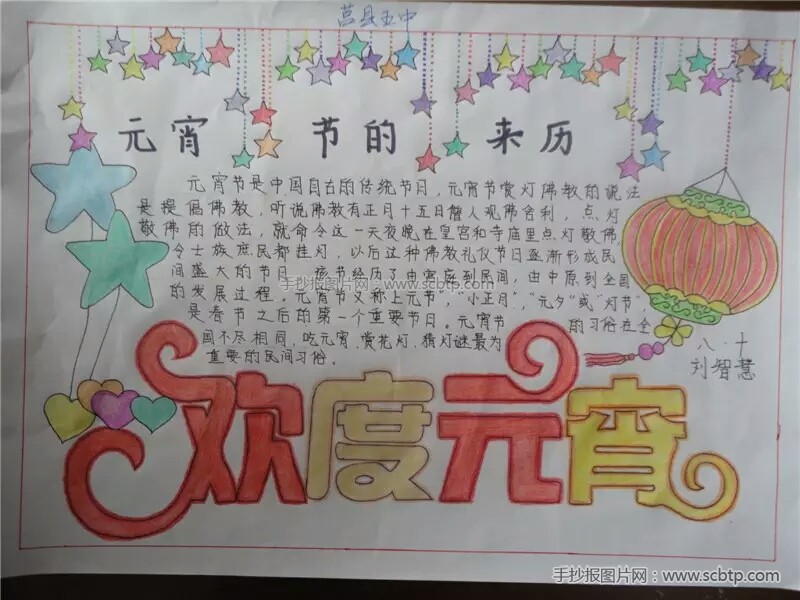 莒县五中
元宵 节的 来历
元宵节是中国自古的传统节日，元宵节赏灯佛教的说法
是提倡佛教，听说佛教有正月十五日僧人观佛舍利，点灯
敬佛的做法，就命令这一天夜晚在皇宫和寺庙里点灯敬佛，
令士族庶民都挂灯，以后这种佛教礼仪节日逐渐形成民
间盛大的节日。该节经历了由宫庭到民间，由中原到全国
的发展过程。元宵节又称上元节"，"小正月"，"元夕"或"灯节"，
是春节之后的第一个重要节日。元宵节 的习俗在全
国不尽相同，吃元宵、赏花灯、猜灯谜最为
重要的民间习俗。
八·十
刘智慧
欢度元宵
手抄报图片网：www.scbtp.com
手抄报图片网：www.scbtp.com